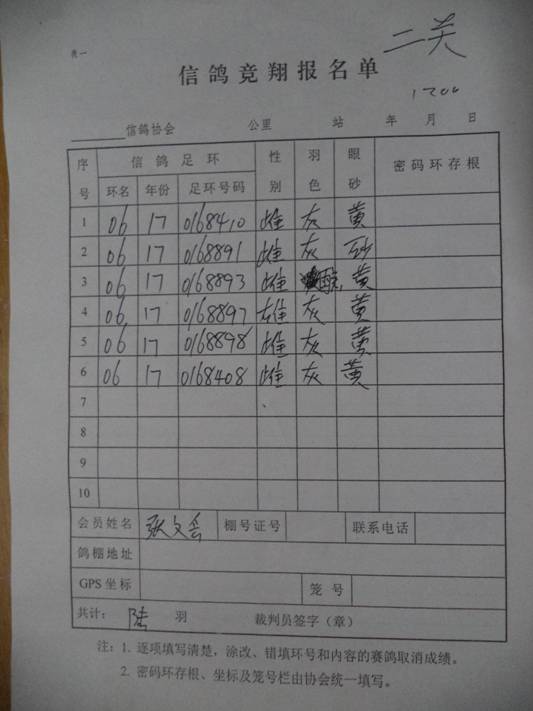 表一
二关
信鸽竞翔报名单
1200
信鸽协会 公里 站 年 月 日
序号 信鸽足环 性别 羽色 眼砂 密码环存根
环名 年份 足环号码
1 06 17 0168410 雌 灰 黄
2 06 17 0168891 雌 灰 砂
3 06 17 0168893 雌 黄
4 06 17 0168897 雄 灰 黄
5 06 17 0168898 雌 灰 黄
6 06 17 0168408 雌 灰 黄
7
8
9
10
会员姓名 张文会 棚号证号 联系电话
鸽棚地址
GPS坐标 笼号
共计: 陆 羽 裁判员签字(章)
注:1. 逐项填写清楚,涂改、错填环号和内容的赛鸽取消成绩。
2. 密码环存根、坐标及笼号栏由协会统一填写。